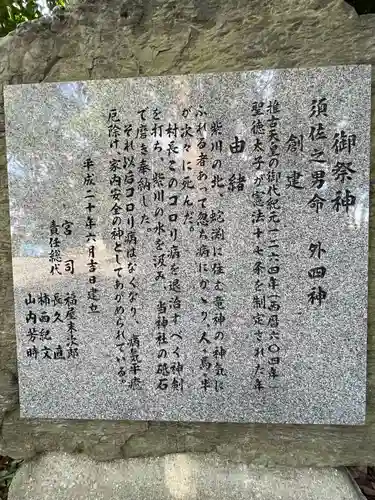 御祭神
須佐之男命　外四神
創建
推古天皇の御代紀元一二六四年（西暦六〇四年）
聖徳太子が憲法十七条を制定された年
由緒
柴川の北、蛇渕に住む竜神の神気に
ふれる者あって忽ち病にかゝり、人、馬、牛
が次々に死んだ。
村長このコロリ病を退治すべく神剣
を打ち、柴川の水を汲み、当神社の砥石
で磨き奉納した。
それ以後コロリ病はなくなり、病気平癒
厄除け家内安全の神としてあがめられている。
平成二十年六月吉日建立
宮司　福尾末次郎
責任総代　長久　直
柿西紀文
山内芳時